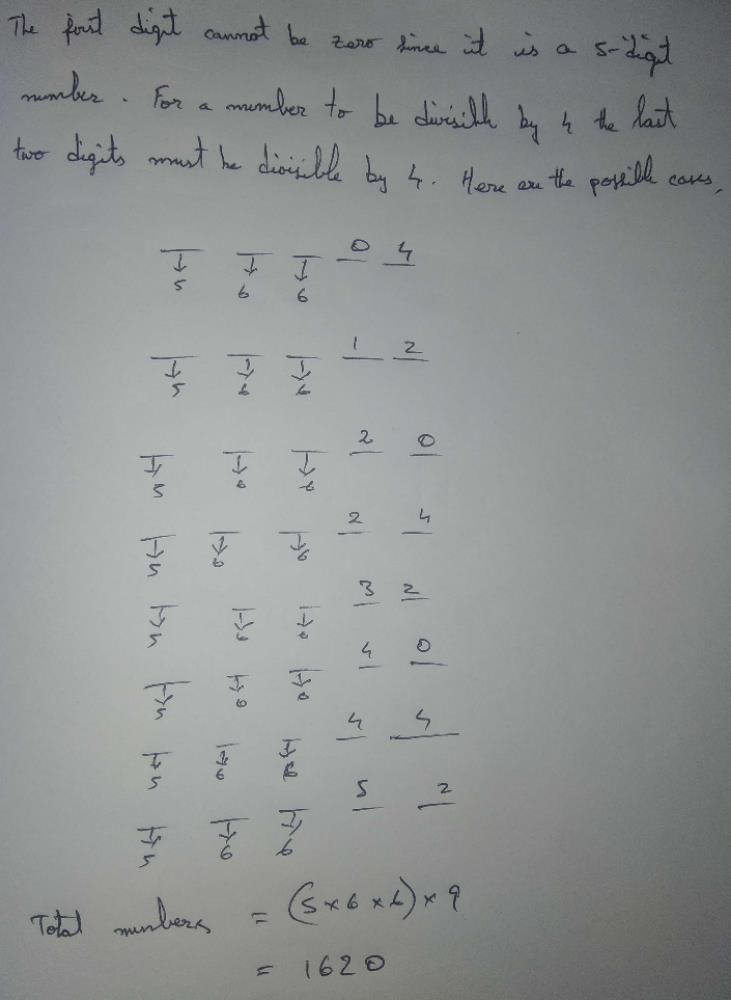 The first digit cannot be zero since it is a 5-digit
number. For a number to be divisible by 4 the last
two digits must be divisible by 4. Here are the possible cases,
0 4
5 6 6
1 2
5 6 6
2 0
5 6 6
2 4
5 6 6
3 2
5 6 6
4 0
5 6 6
4 4
5 6 6
5 2
5 6 6
Total numbers = (5 x 6 x 6) x 9
= 1620